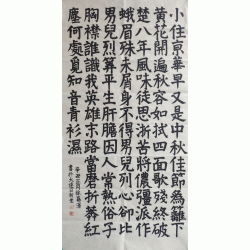 小住京華早又是中秋佳節為籬下
黃花開遍秋容如拭四面歌殘終破
楚八年風味徒思浙苦將儂強派作
蛾眉殊未屑身不得男兒列心卻比
男兒烈算平生肝膽因人常熱俗子
胸襟誰識我英雄末路當磨折莽紅
塵何處覓知音青衫濕